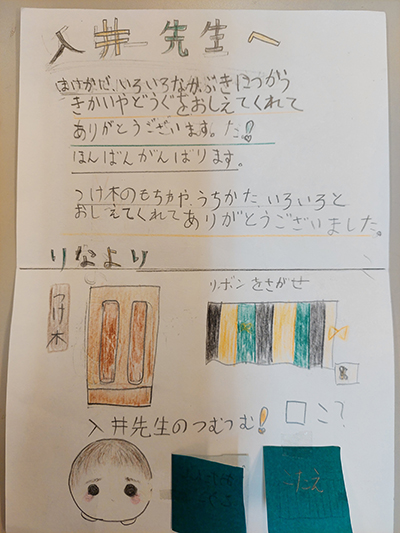 入井 先生へ
おけがだ、いろいろなかぶきにつかう
きかいやどうぐをおしえてくれて
ありがとうございます。た！
ほんばんがんばります。
つけ木のもちかや、うちかた、いろいろと
おしえてくれてありがとうございました。
りなより
つけ木
リボンをさがせ
入井先生のつむつむ！
□こ？
こたえ